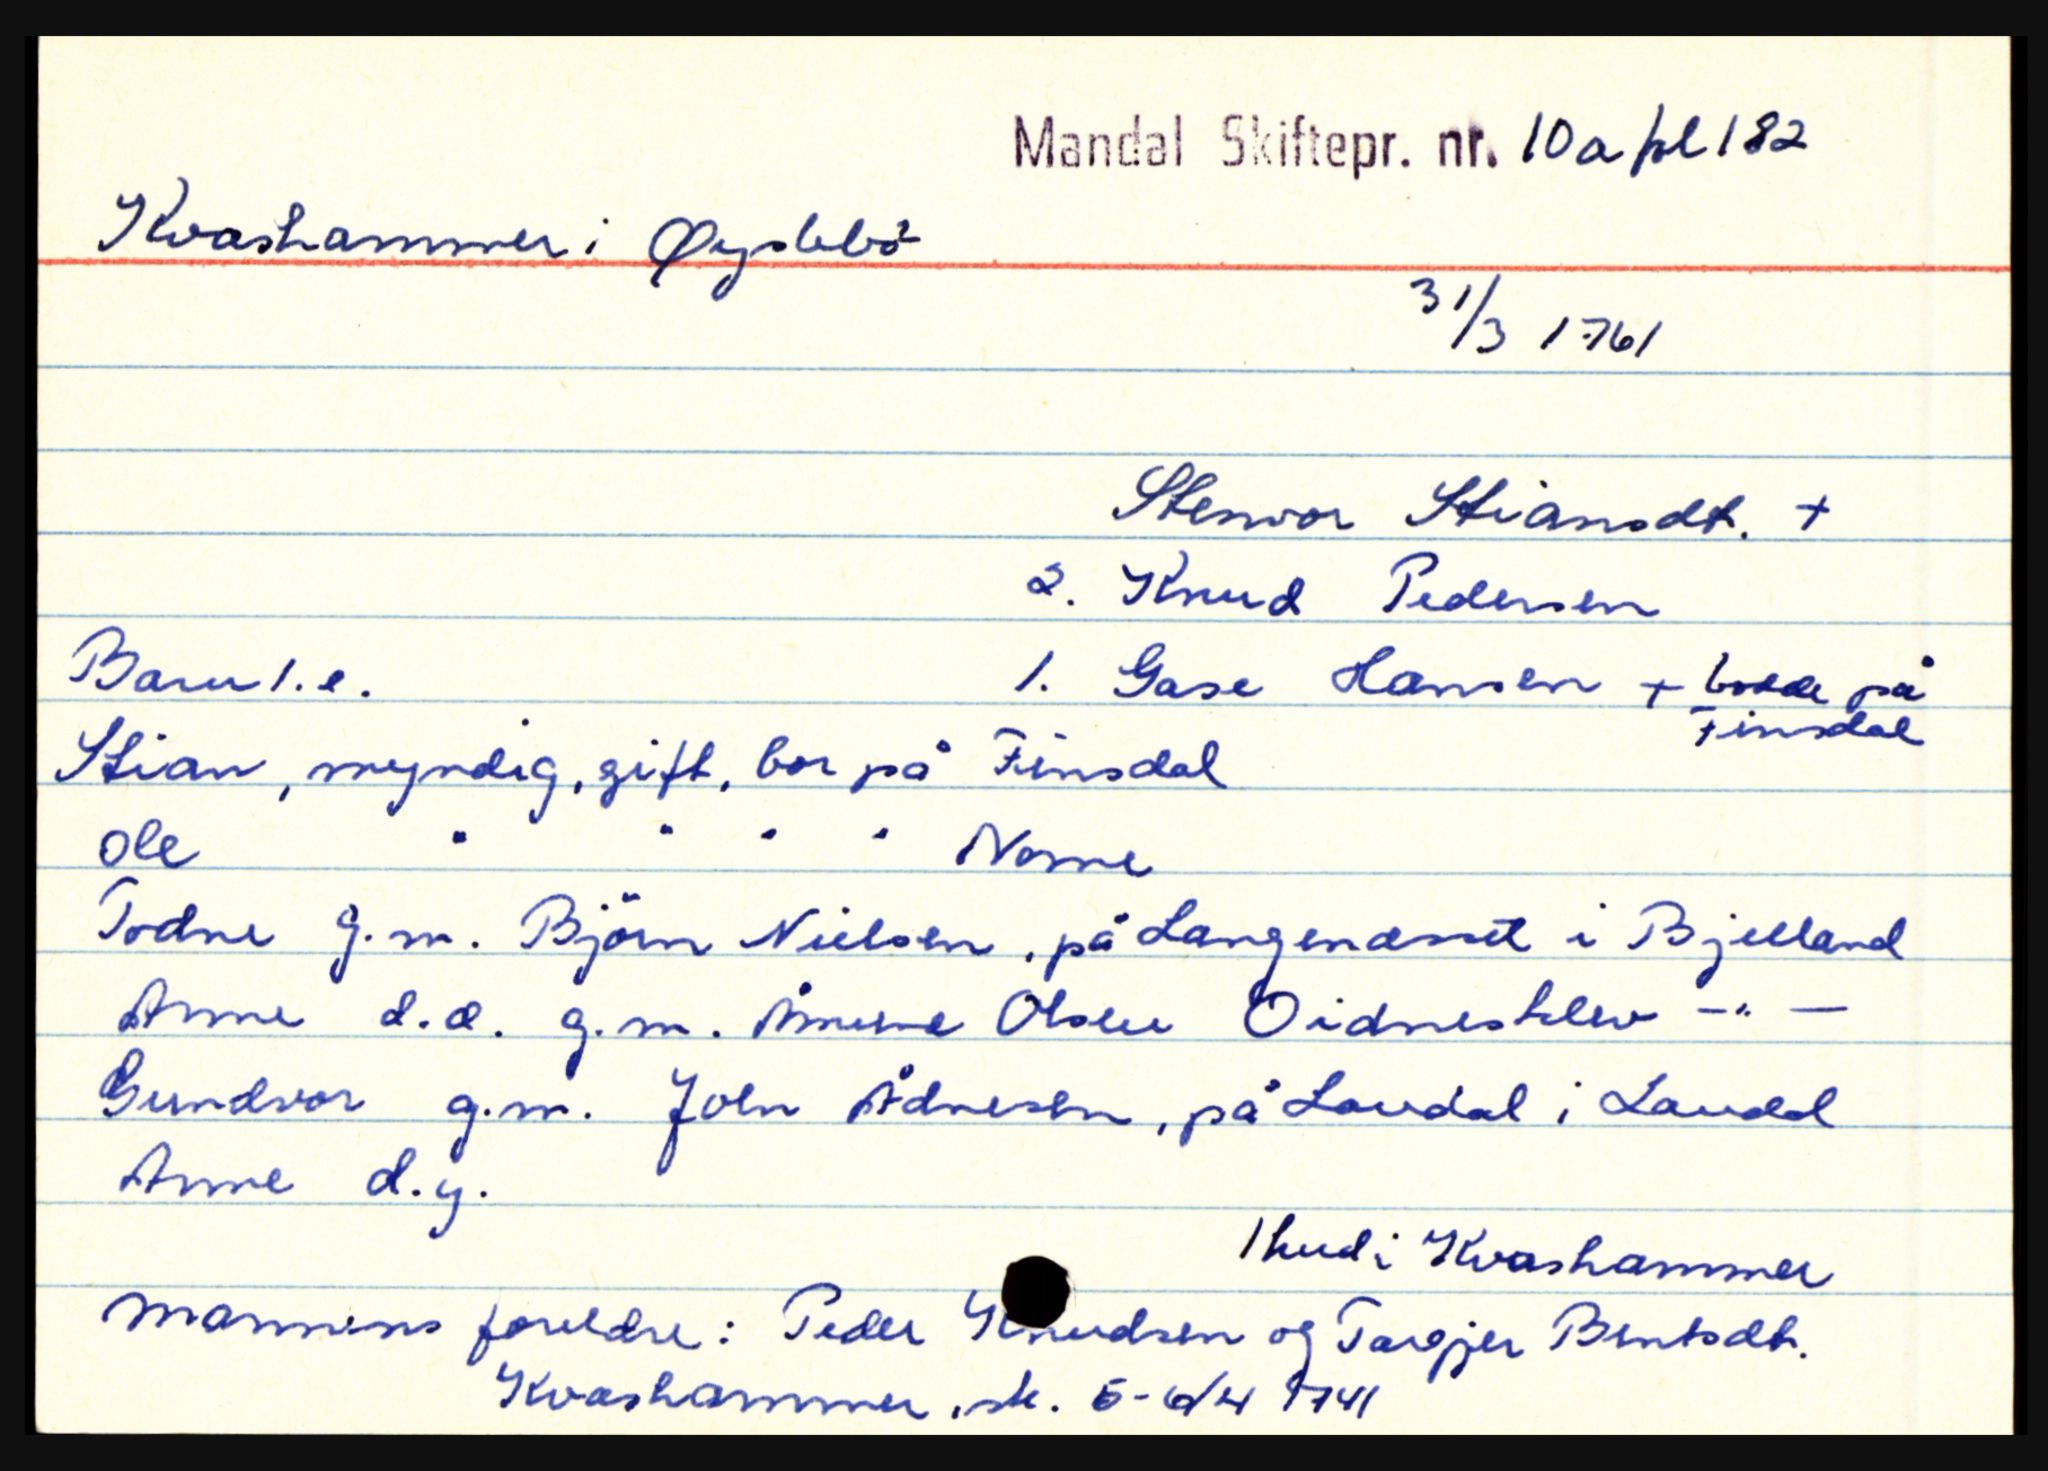 Mandal Skiftepr. nr. 10a fol 182
Kvashammer i Øyslebö
31/3 1761
Stenvor Stiansdt. +
2. Knud Pedersen
Barn 1. e. 1. Gase Hansen + bodde på Finsdal
Stian, myndig, gift, bor på Finsdal
Ole " " " " Nome
Todne g.m. Björn Nielsen, på Langenæsset i Bjelland
Anne d.æ. g.m. Ånene Olsen Oidnesklev - " -
Gundvor g.m. John Ådnesen, på Laudal i Laudal
Anne d.y.
1 hud i Kvashammer
Mannens foreldre: Peder Knudsen og Targjer Bentsdt.
Kvashammer, sk. 5-6/4 1741